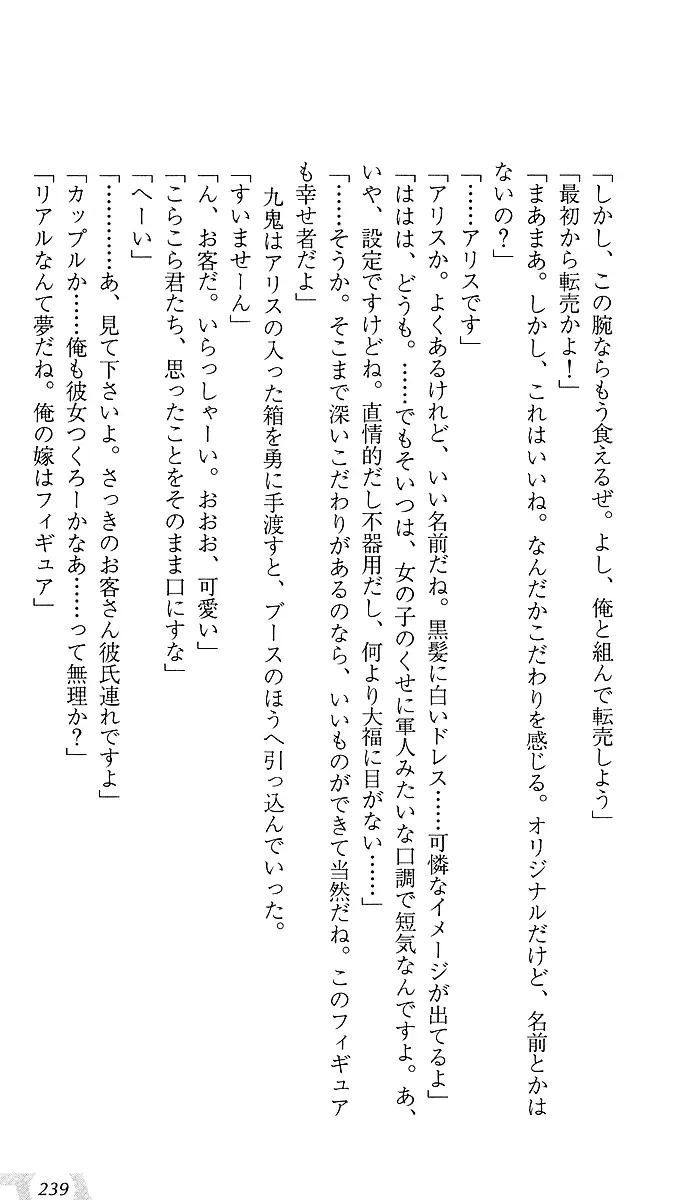 「しかし、この腕ならもう食えるぜ。よし、俺と組んで転売しよう」
「最初から転売かよ！」
「まあまあ。しかし、これはいいね。なんだかこだわりを感じる。オリジナルだけど、名前とかは
ないの？」
「……アリスです」
「アリスか。よくあるけれど、いい名前だね。黒髪に白いドレス……可憐なイメージが出てるよ」
「ははは、どうも。……でもそいつは、女の子のくせに軍人みたいな口調で短気なんですよ。あ、
いや、設定ですけどね。直情的だし不器用だし、何より大福に目がない……」
「……そうか。そこまで深いこだわりがあるのなら、いいものができて当然だね。このフィギュア
も幸せ者だよ」
　九鬼はアリスの入った箱を勇に手渡すと、ブースのほうへ引っ込んでいった。
「すいませーん」
「ん、お客だ。いらっしゃーい。おおお、可愛い」
「こらこら君たち、思ったことをそのまま口にすな」
「へーい」
「…………あ、見て下さいよ。さっきのお客さん彼氏連れですよ」
「カップルか……俺も彼女つくろーかなあ……って無理か？」
「リアルなんて夢だね。俺の嫁はフィギュア」
239